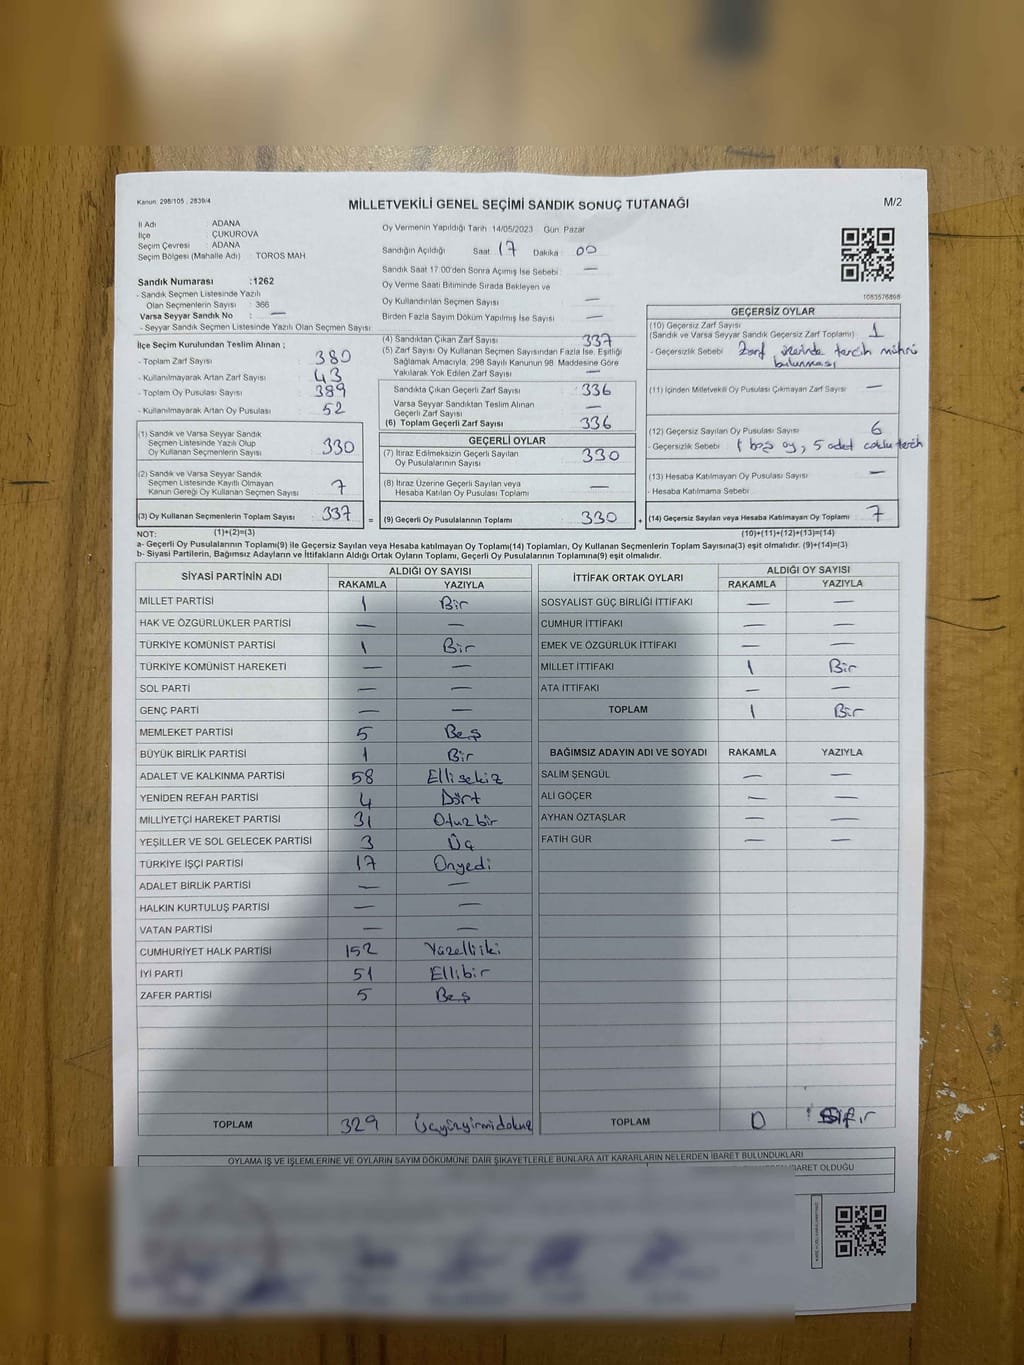 Kanun: 298/105 , 2839/4
MİLLETVEKİLİ GENEL SEÇİMİ SANDIK SONUÇ TUTANAĞI
M/2
İl Adı ADANA
İlçe : ÇUKUROVA
Seçim Çevresi : ADANA
Seçim Bölgesi (Mahalle Adı) TOROS MAH.
Sandık Numarası :1262
- Sandık Seçmen Listesinde Yazılı
Olan Seçmenlerin Sayısı : 366
Varsa Seyyar Sandık No : —
- Seyyar Sandık Seçmen Listesinde Yazılı Olan Seçmen Sayısı:
Oy Vermenin Yapıldığı Tarih: 14/05/2023 Gün: Pazar
Sandığın Açıldığı Saat 17 Dakika : 00
Sandık Saat 17.00'den Sonra Açımış İse Sebebi : —
Oy Verme Saati Bitiminde Sırada Bekleyen ve
Oy Kullandırılan Seçmen Sayısı : —
Birden Fazla Sayım Döküm Yapılmış İse Sayısı : —
1083576898
İlçe Seçim Kurulundan Teslim Alınan ;
- Toplam Zarf Sayısı : 380
- Kullanılmayarak Artan Zarf Sayısı : 43
- Toplam Oy Pusulası Sayısı : 389
- Kullanılmayarak Artan Oy Pusulası : 52
(1) Sandık ve Varsa Seyyar Sandık
Seçmen Listesinde Yazılı Olup
Oy Kullanan Seçmenlerin Sayısı : 330
(2) Sandık ve Varsa Seyyar Sandık
Seçmen Listesinde Kayıtlı Olmayan
Kanun Gereği Oy Kullanan Seçmen Sayısı : 7
(3) Oy Kullanan Seçmenlerin Toplam Sayısı : 337
(4) Sandıktan Çıkan Zarf Sayısı : 337
(5) Zarf Sayısı Oy Kullanan Seçmen Sayısından Fazla İse, Eşitliği
Sağlamak Amacıyla, 298 Sayılı Kanunun 98. Maddesine Göre
Yakılarak Yok Edilen Zarf Sayısı : —
Sandıkta Çıkan Geçerli Zarf Sayısı : 336
Varsa Seyyar Sandıktan Teslim Alınan
Geçerli Zarf Sayısı : —
(6) Toplam Geçerli Zarf Sayısı : 336
GEÇERLİ OYLAR
(7) İtiraz Edilmeksizin Geçerli Sayılan
Oy Pusulalarının Sayısı : 330
(8) İtiraz Üzerine Geçerli Sayılan veya
Hesaba Katılan Oy Pusulası Toplamı : —
= (9) Geçerli Oy Pusulalarının Toplamı : 330 +
GEÇERSİZ OYLAR
(10) Geçersiz Zarf Sayısı
(Sandık ve Varsa Seyyar Sandık Geçersiz Zarf Toplamı) : 1
- Geçersizlik Sebebi : Zarf üzerinde tercih mührü
bulunması
(11) İçinden Milletvekili Oy Pusulası Çıkmayan Zarf Sayısı : —
(12) Geçersiz Sayılan Oy Pusulası Sayısı : 6
- Geçersizlik Sebebi : 1 boş oy, 5 adet çoklu tercih
(13) Hesaba Katılmayan Oy Pusulası Sayısı : —
- Hesaba Katılmama Sebebi :
(14) Geçersiz Sayılan veya Hesaba Katılmayan Oy Toplamı : 7
NOT: (1)+(2)=(3) (10)+(11)+(12)+(13)=(14)
a- Geçerli Oy Pusulalarının Toplamı(9) ile Geçersiz Sayılan veya Hesaba katılmayan Oy Toplamı(14) Toplamları, Oy Kullanan Seçmenlerin Toplam Sayısına(3) eşit olmalıdır. (9)+(14)=(3)
b- Siyasi Partilerin, Bağımsız Adayların ve İttifakların Aldığı Ortak Oyların Toplamı, Geçerli Oy Pusulalarının Toplamına(9) eşit olmalıdır.
SİYASİ PARTİNİN ADI ALDIĞI OY SAYISI
RAKAMLA YAZIYLA
MİLLET PARTİSİ 1 Bir
HAK VE ÖZGÜRLÜKLER PARTİSİ — —
TÜRKİYE KOMÜNİST PARTİSİ 1 Bir
TÜRKİYE KOMÜNİST HAREKETİ — —
SOL PARTİ — —
GENÇ PARTİ — —
MEMLEKET PARTİSİ 5 Beş
BÜYÜK BİRLİK PARTİSİ 1 Bir
ADALET VE KALKINMA PARTİSİ 58 Ellisekiz
YENİDEN REFAH PARTİSİ 4 Dört
MİLLİYETÇİ HAREKET PARTİSİ 31 Otuzbir
YEŞİLLER VE SOL GELECEK PARTİSİ 3 Üç
TÜRKİYE İŞÇİ PARTİSİ 17 Onyedi
ADALET BİRLİK PARTİSİ — —
HALKIN KURTULUŞ PARTİSİ — —
VATAN PARTİSİ — —
CUMHURİYET HALK PARTİSİ 152 Yüzelliiki
İYİ PARTİ 51 Ellibir
ZAFER PARTİSİ 5 Beş
TOPLAM 329 Üçyüzyirmidokuz
İTTİFAK ORTAK OYLARI ALDIĞI OY SAYISI
RAKAMLA YAZIYLA
SOSYALİST GÜÇ BİRLİĞİ İTTİFAKI — —
CUMHUR İTTİFAKI — —
EMEK VE ÖZGÜRLÜK İTTİFAKI — —
MİLLET İTTİFAKI 1 Bir
ATA İTTİFAKI — —
TOPLAM 1 Bir
BAĞIMSIZ ADAYIN ADI VE SOYADI RAKAMLA YAZIYLA
SALİM ŞENGÜL — —
ALİ GÖÇER — —
AYHAN ÖZTAŞLAR — —
FATİH GÜR — —
TOPLAM 0 Sıfır
OYLAMA İŞ VE İŞLEMLERİNE VE OYLARIN SAYIM DÖKÜMÜNE DAİR ŞİKAYETLERLE BUNLARA AİT KARARLARIN NELERDEN İBARET BULUNDUKLARI
İBARET OLDUĞU